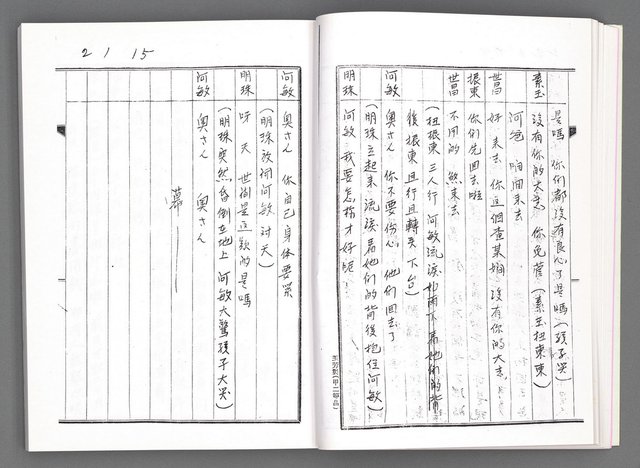 是嗎 你們都沒有良心了是嗎(孩子哭)
素玉 沒有你的大志 你免管(素玉扭東東)
阿爸 咱回來去
世昌 好 來去 你這個查某嫺 沒有你的大志
振東 你們先回去啦
世昌 不用的 煞來去
(扭振東 三人行 阿敏流淚如雨下 看她們的背
後 振東且行且轉头 下台)
阿敏 奧さん 你不要伤心 他們回去了
(明珠立起來 流淚看她們的背後 抱住阿敏)
明珠 阿敏 我要怎樣才好呢
2 1 15
阿敏 奧さん 你自己身体要緊
(明珠放開阿敏 对天)
明珠 呀 天 世间是這款的是嗎
(明珠突然昏倒在地上 阿敏大驚 孩子大哭)
阿敏 奧さん 奧さん
幕